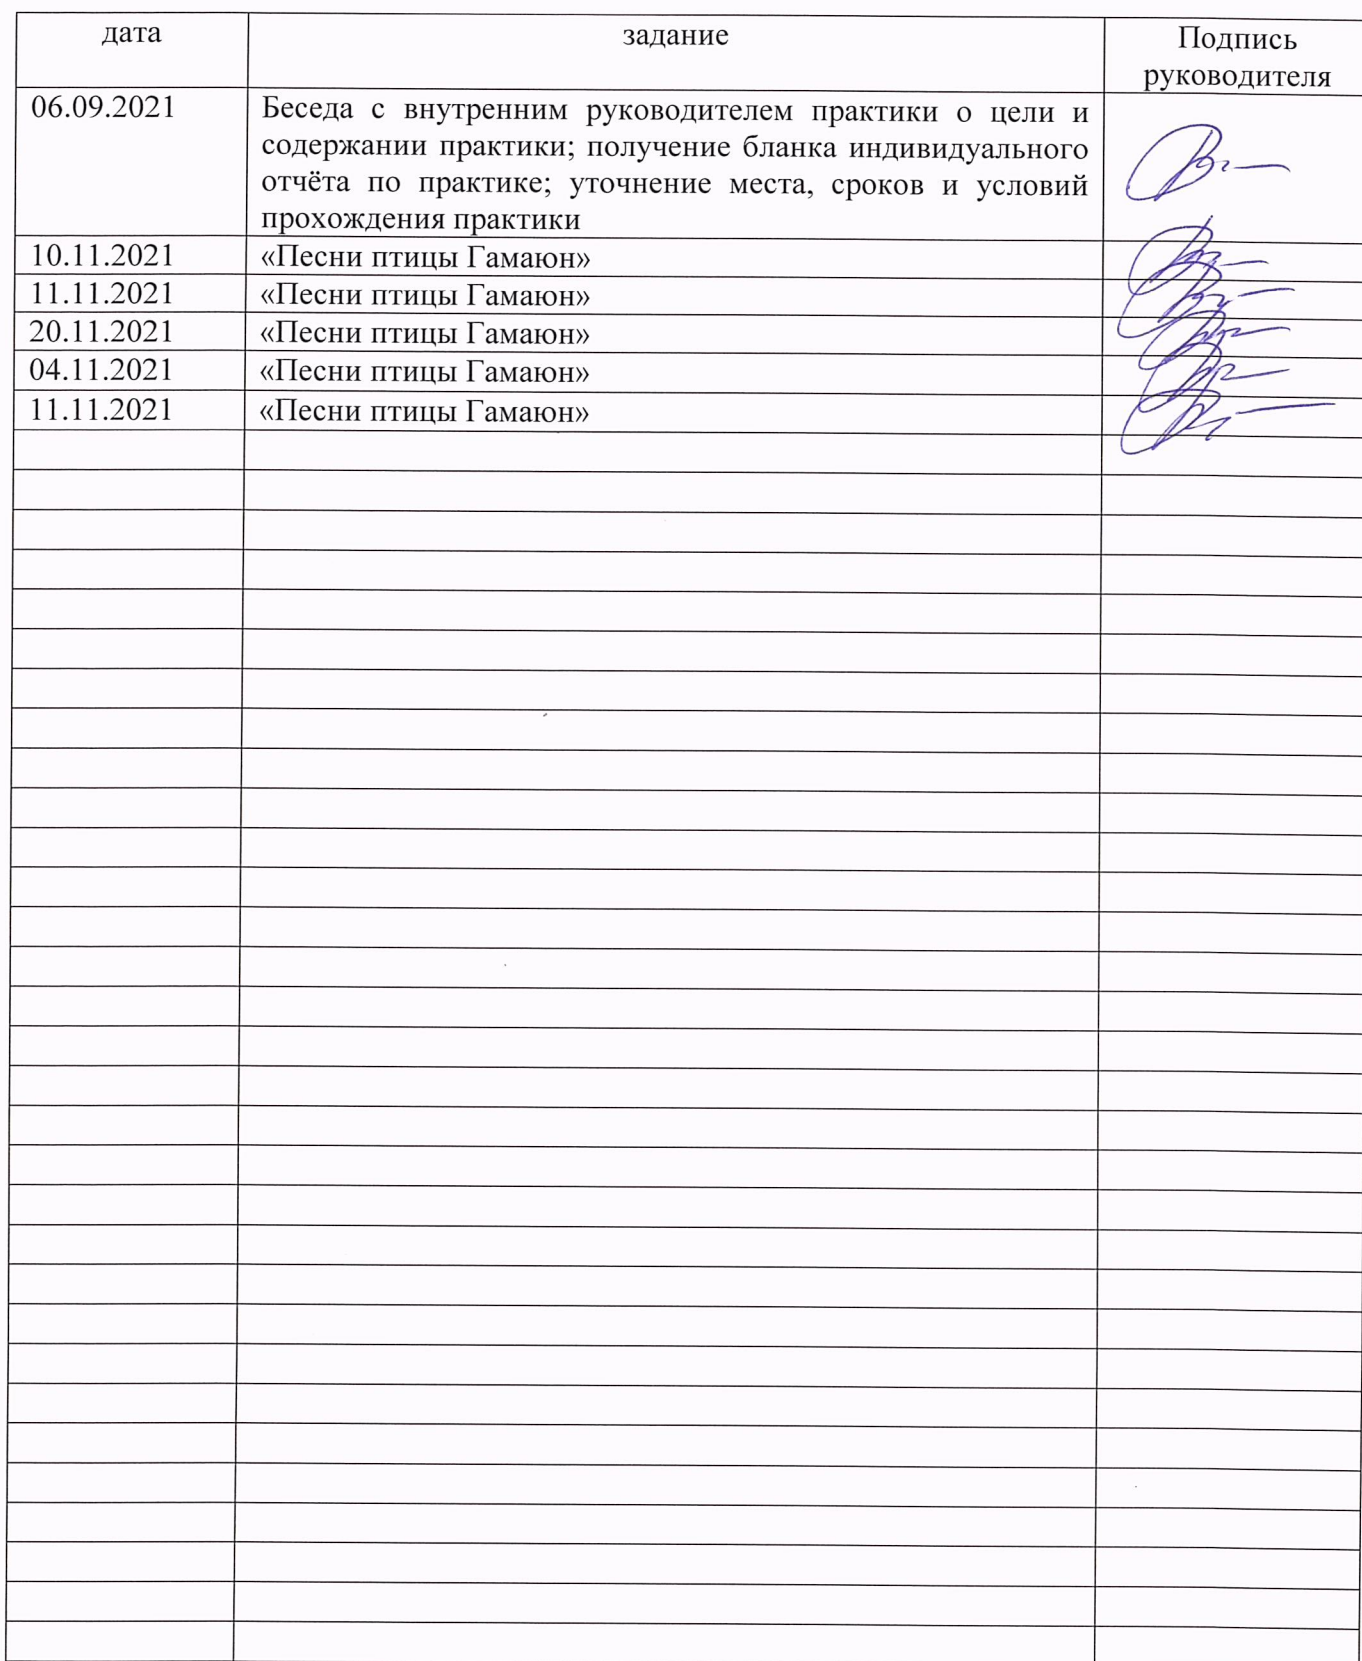 дата задание Подпись
руководителя
06.09.2021 Беседа с внутренним руководителем практики о цели и
содержании практики; получение бланка индивидуального
отчёта по практике; уточнение места, сроков и условий
прохождения практики
10.11.2021 «Песни птицы Гамаюн»
11.11.2021 «Песни птицы Гамаюн»
20.11.2021 «Песни птицы Гамаюн»
04.11.2021 «Песни птицы Гамаюн»
11.11.2021 «Песни птицы Гамаюн»